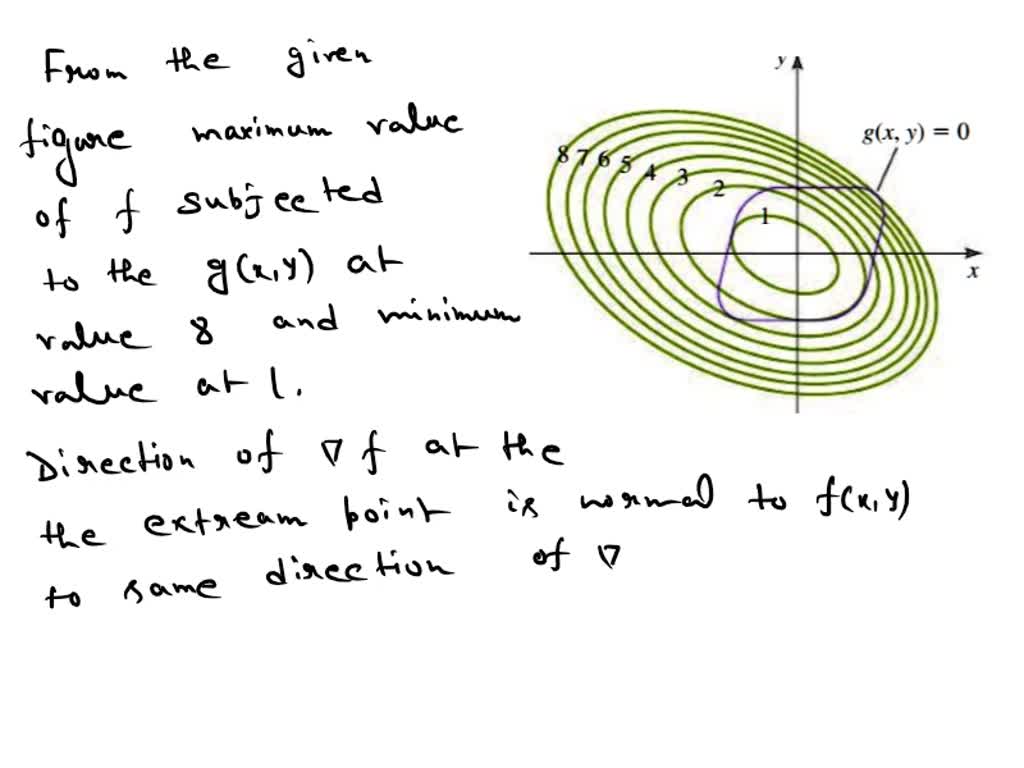 From the given
figure maximum value
of f subjected
to the g(x,y) at
value 8 and minimum
value at 1.
Direction of ∇ f at the
the extream point is normal to f(x,y)
to same direction of ∇
y
g(x, y) = 0
8 7 6 5 4 3 2 1
x